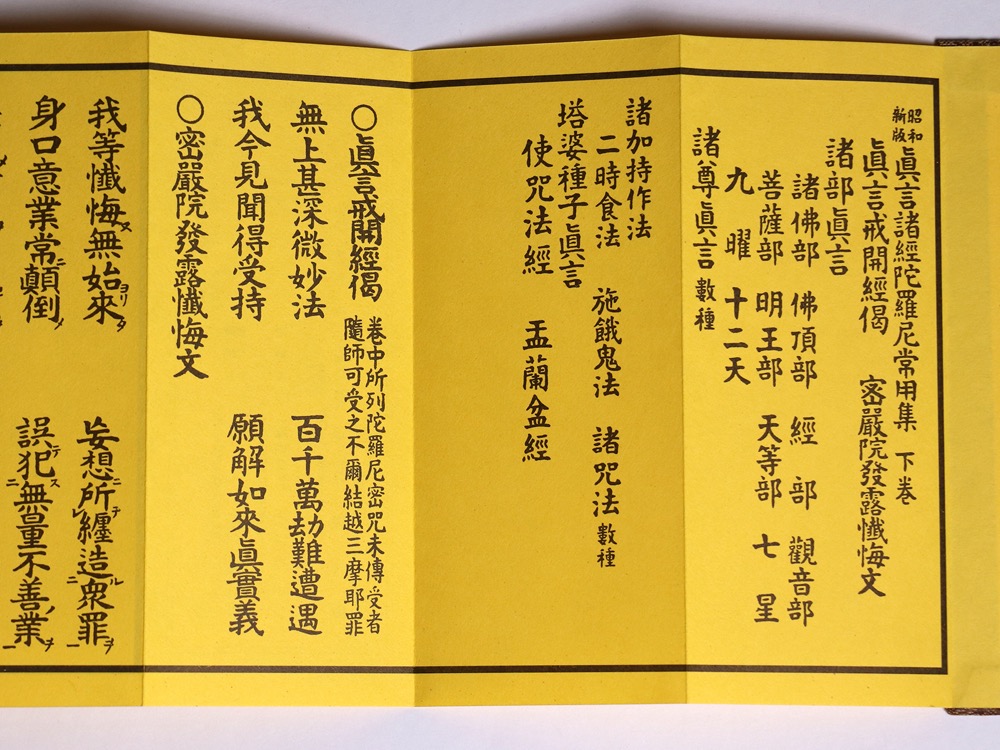 昭和新版 眞言諸經陀羅尼常用集 下巻
眞言戒開經偈 密嚴院發露懺悔文
諸部眞言
諸佛部 佛頂部 經部 觀音部
菩薩部 明王部 天等部 七星
九曜 十二天
諸尊眞言 數種
諸加持作法
二時食法 施餓鬼法 諸咒法 數種
塔婆種子眞言
使咒法經 盂蘭盆經
〇眞言戒開經偈 卷中所列陀羅尼密咒未傳受者
隨師可受之不爾結越三摩耶罪
無上甚深微妙法 百千萬劫難遭遇
我今見聞得受持 願解如來眞實義
〇密嚴院發露懺悔文
我等懺悔ス無始ヨリ來タ 妄想ニ所レ纏テ造ル二衆罪ヲ一
身口意業常ニ顛倒メ 誤テ犯ス二無量不善ノ業ヲ一